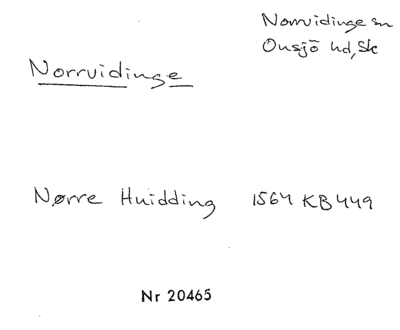 Norrvidinge sn
Onsjö hd, Sk
Norrvidinge
Nørre Huidding 1564 KB 449
Nr 20465